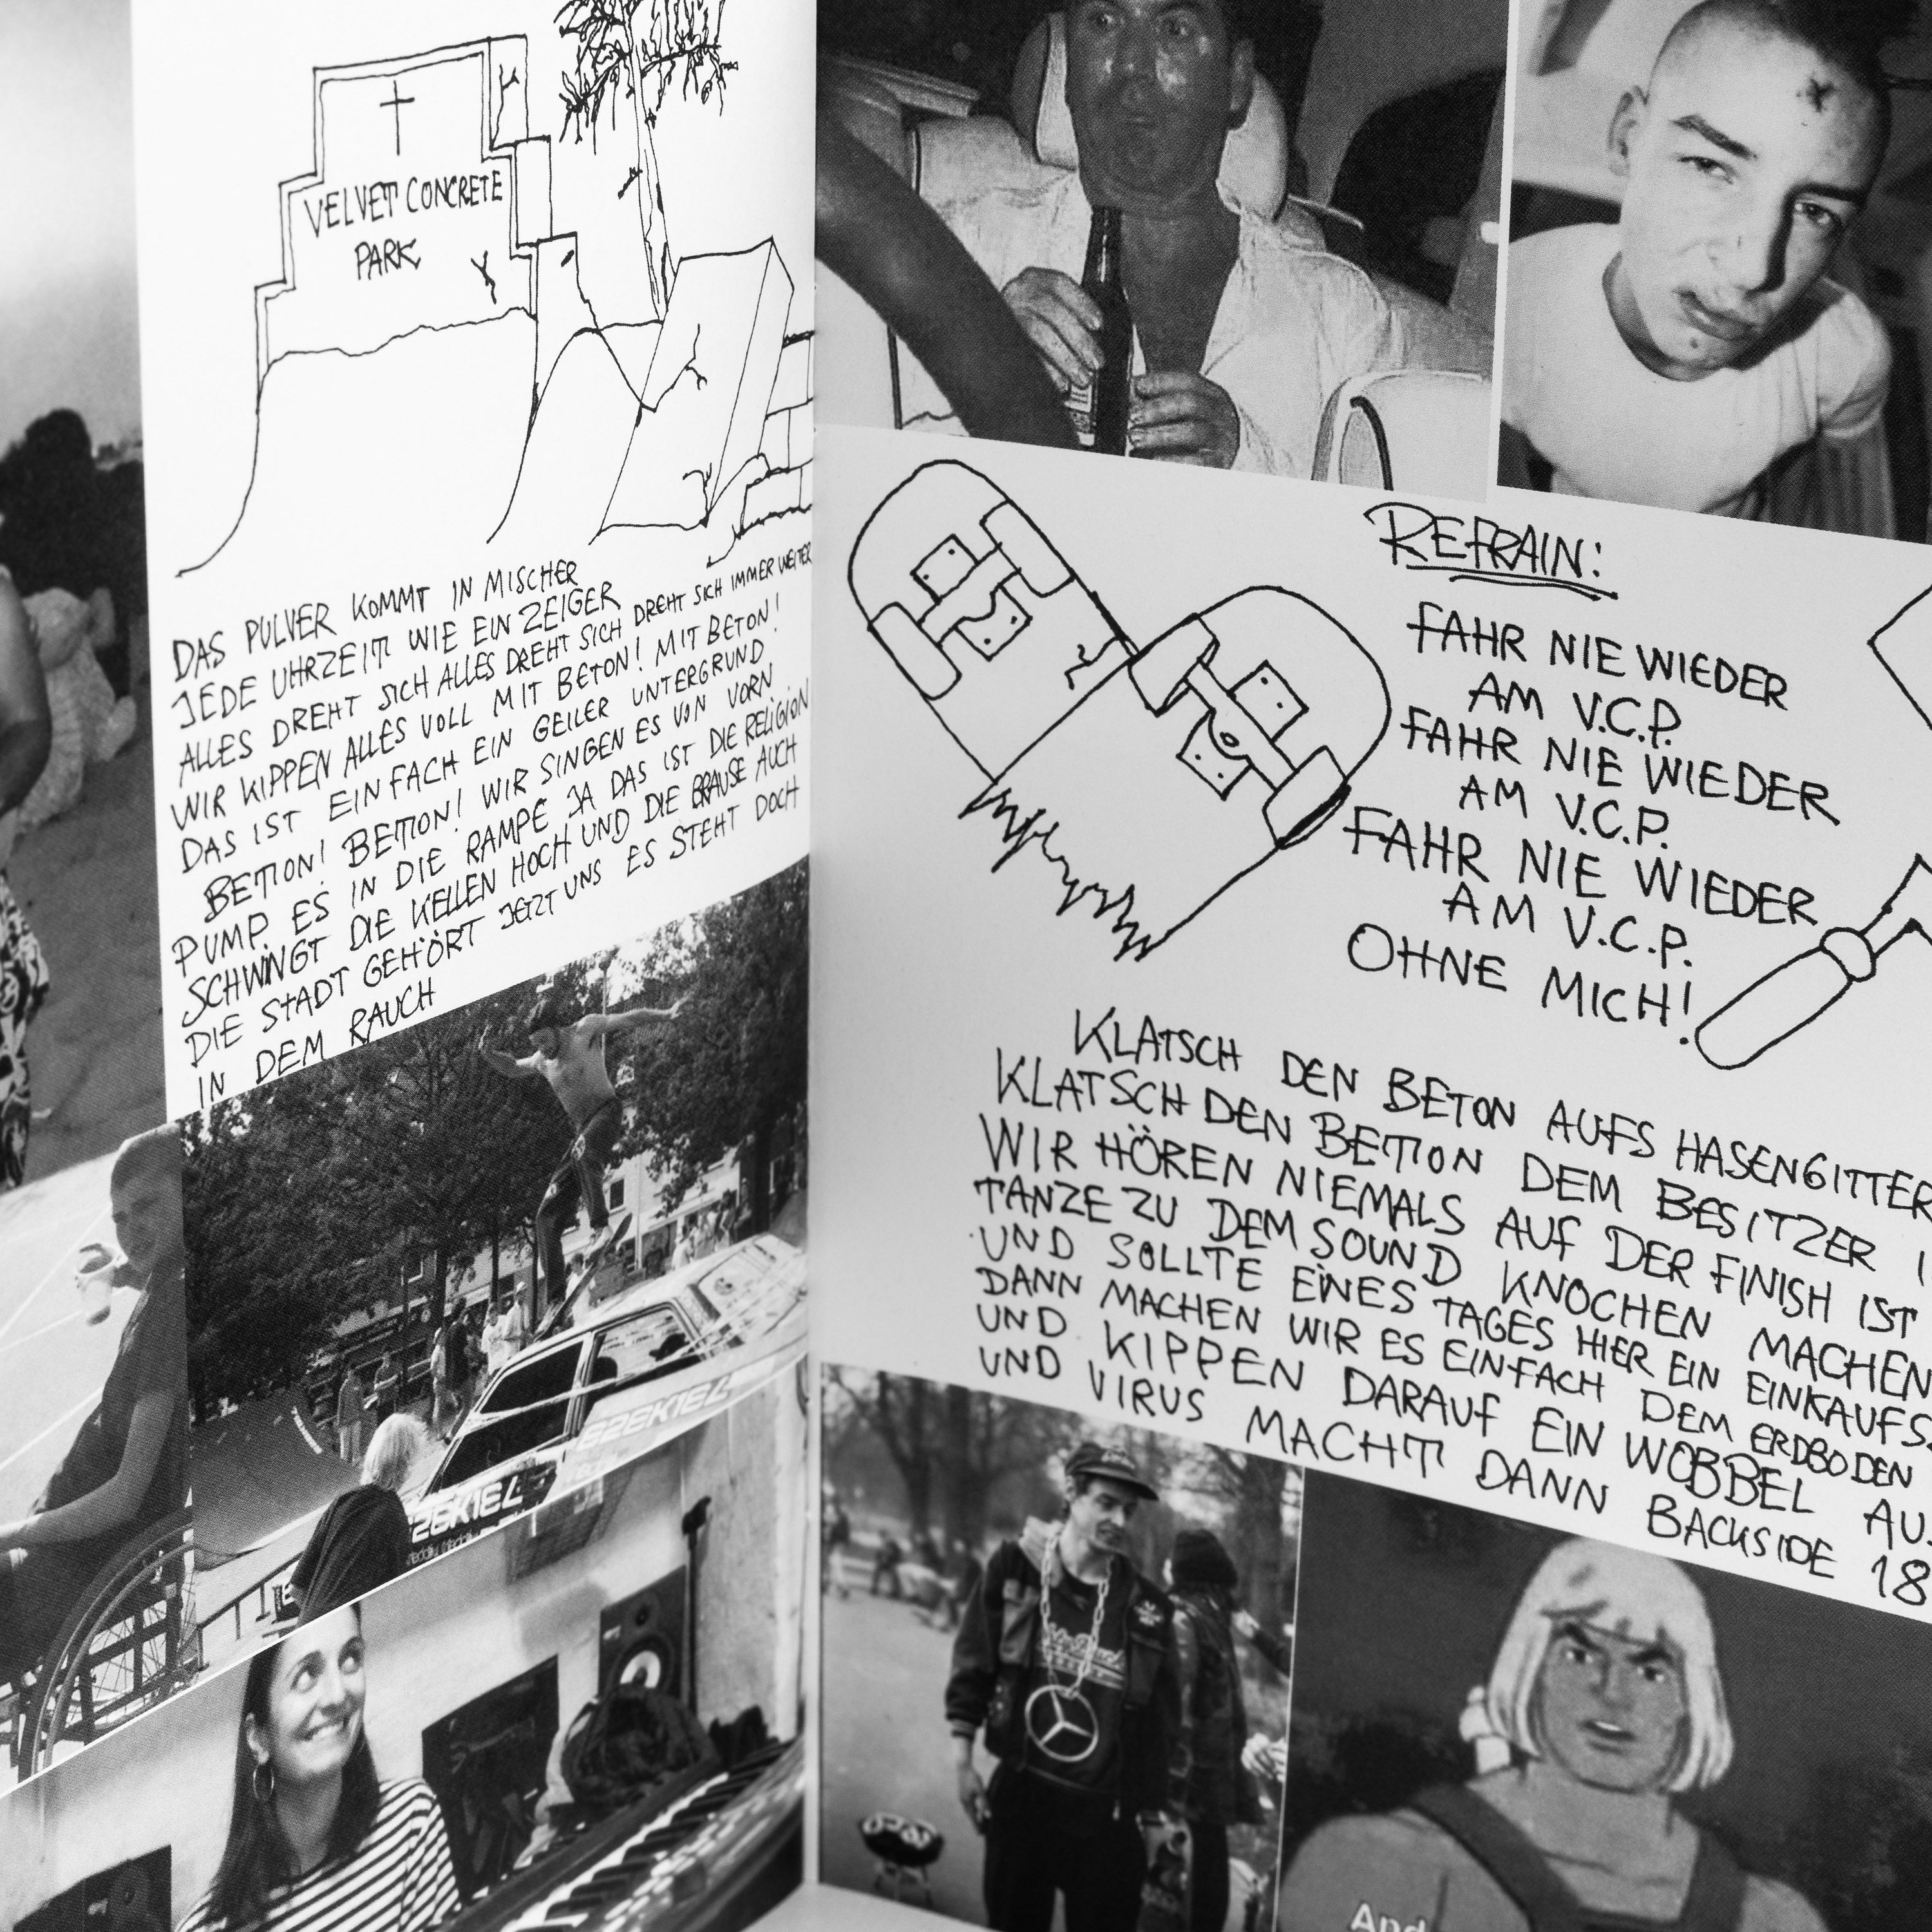 VELVET CONCRETE
PARK
DAS PULVER KOMMT IN MISCHER
JEDE UHRZEIT WIE EIN ZEIGER
ALLES DREHT SICH ALLES DREHT SICH DREHT SICH IMMER WEITER
WIR KIPPEN ALLES VOLL MIT BETON! MIT BETON!
DAS IST EINFACH EIN GEILER UNTERGRUND
BETON! BETON! WIR SINGEN ES VON VORN
PUMP ES IN DIE RAMPE JA DAS IST DIE RELIGION
SCHWINGT DIE KELLEN HOCH UND DIE BRAUSE AUCH
DIE STADT GEHÖRT JETZT UNS ES STEHT DOCH
IN DEM RAUCH
EZEKIEL
EZEKIEL
REFRAIN:
FAHR NIE WIEDER
AM V.C.P.
FAHR NIE WIEDER
AM V.C.P.
FAHR NIE WIEDER
AM V.C.P.
OHNE MICH!
KLATSCH DEN BETON AUFS HASENGITTER
KLATSCH DEN BETON DEM BESITZER
WIR HÖREN NIEMALS AUF DER FINISH IST
TANZE ZU DEM SOUND KNOCHEN MACHEN
UND SOLLTE EINES TAGES HIER EIN EINKAUFS
DANN MACHEN WIR ES EINFACH DEM ERDBODEN
UND KIPPEN DARAUF EIN WOBBEL AU
UND VIRUS MACHT DANN BACKSIDE 18
And